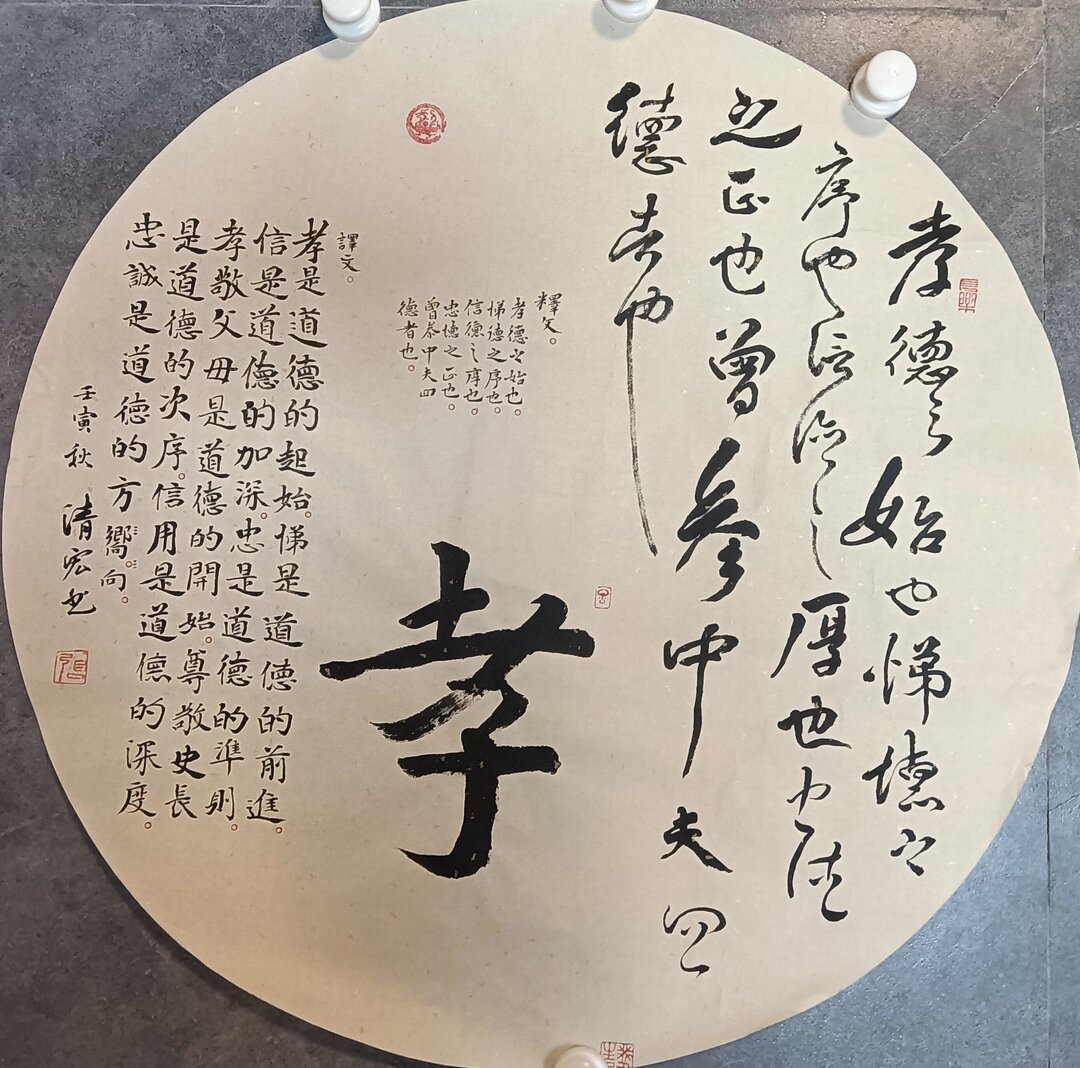 孝德之始也悌德之
序也信德之厚也忠德
之正也曾参中夫四
德者也
孝
釋文。
孝德之始也。
悌德之序也。
信德之厚也。
忠德之正也。
曾参中夫四
德者也。
譯文。
孝是道德的起始。悌是道德的前進。
信是道德的加深。忠是道德的準則。
孝敬父母是道德的開始。尊敬史長
是道德的次序。信用是道德的深度。
忠誠是道德的方嚮向。
壬寅秋 清宏书